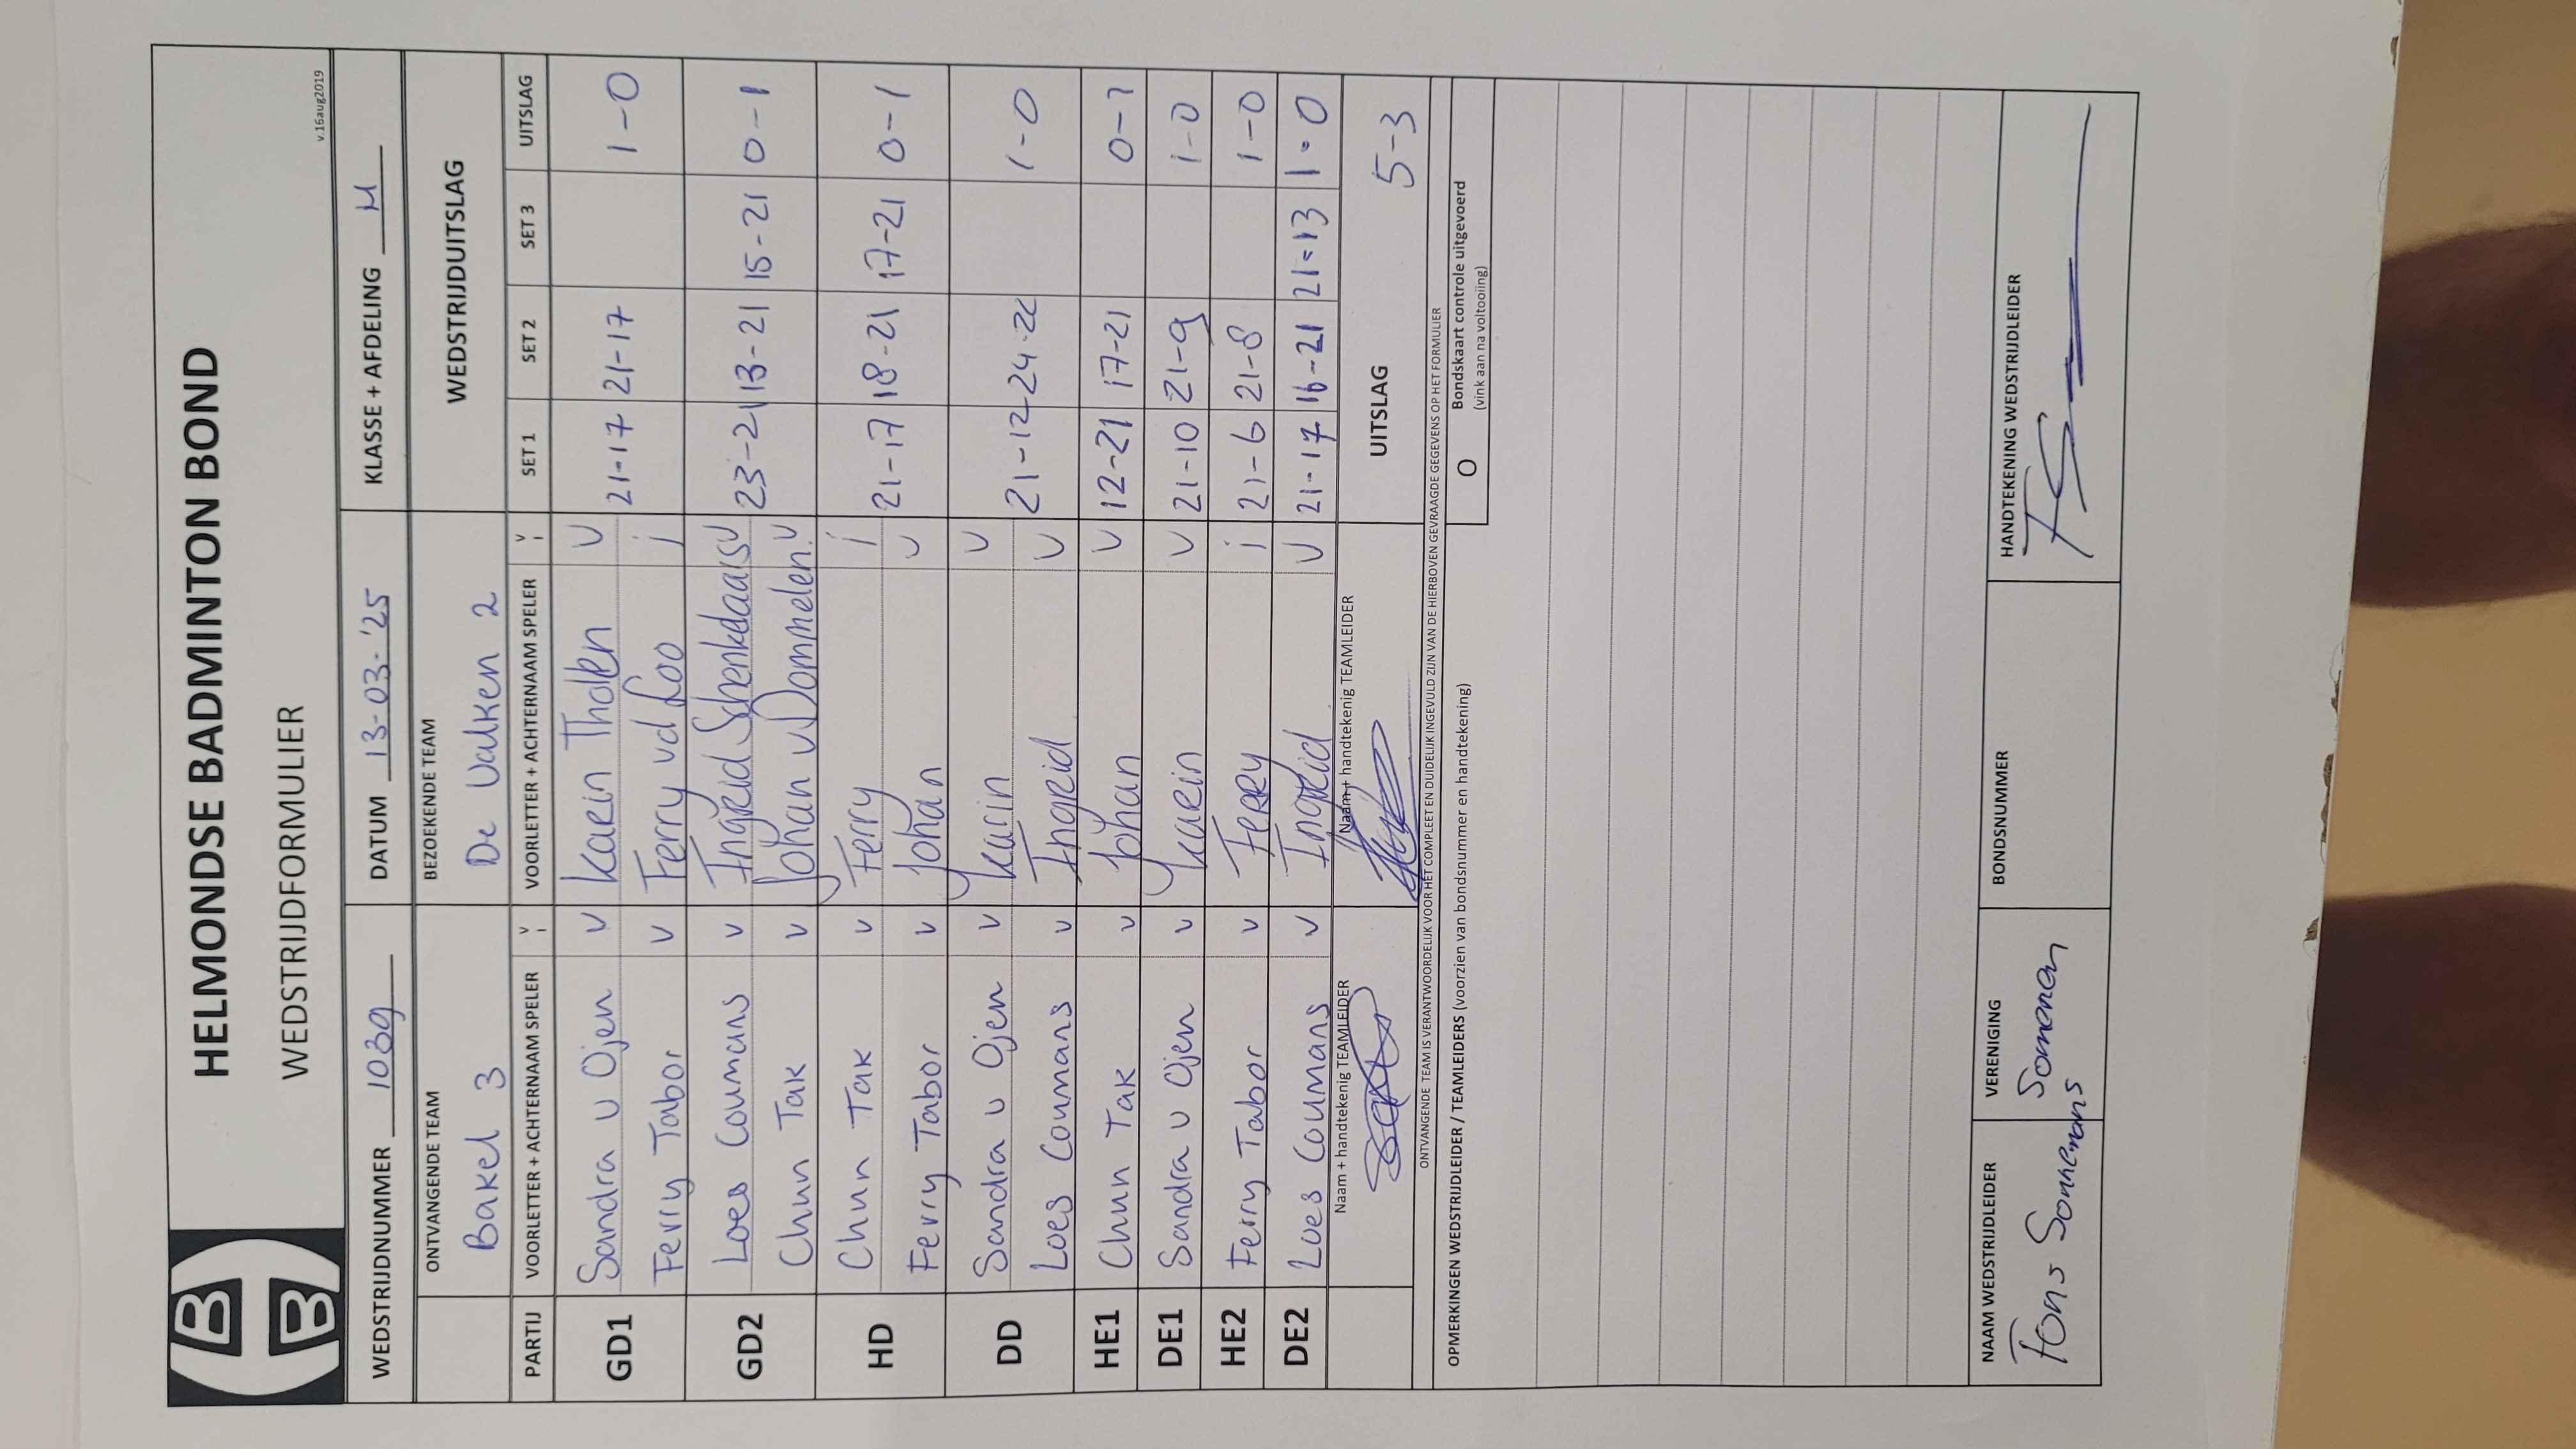 B
B
HELMONDSE BADMINTON BOND
WEDSTRIJDFORMULIER
v.16aug2019
WEDSTRIJDNUMMER 1039 DATUM 13-03-'25 KLASSE + AFDELING M
ONTVANGENDE TEAM BEZOEKENDE TEAM WEDSTRIJDUITSLAG
Bakel 3 De Valken 2
PARTIJ VOORLETTER + ACHTERNAAM SPELER V I VOORLETTER + ACHTERNAAM SPELER V I SET 1 SET 2 SET 3 UITSLAG
GD1 Sandra v Ojen v Karin Tholen v 21-17 21-17 1-0
Ferry Tabor v Ferry vd Loo i
GD2 Loes Coumans v Ingrid Schenkdaals v 23-21 13-21 15-21 0-1
Chun Tak v Johan v Dommelen v
HD Chun Tak v Ferry i 21-17 18-21 17-21 0-1
Ferry Tabor v Johan v
DD Sandra v Ojen v Karin v 21-12 24-22 1-0
Loes Coumans v Ingrid v
HE1 Chun Tak v Johan v 12-21 17-21 0-1
DE1 Sandra v Ojen v Karin v 21-10 21-9 1-0
HE2 Ferry Tabor v Ferry i 21-6 21-8 1-0
DE2 Loes Coumans v Ingrid v 21-17 16-21 21=13 1-0
Naam + handtekenig TEAMLEIDER Naam + handtekenig TEAMLEIDER UITSLAG 5-3
ONTVANGENDE TEAM IS VERANTWOORDELIJK VOOR HET COMPLEET EN DUIDELIJK INGEVULD ZIJN VAN DE HIERBOVEN GEVRAAGDE GEGEVENS OP HET FORMULIER
OPMERKINGEN WEDSTRIJDLEIDER / TEAMLEIDERS (voorzien van bondsnummer en handtekening) O Bondskaart controle uitgevoerd
(vink aan na voltooiing)
NAAM WEDSTRIJDLEIDER VERENIGING BONDSNUMMER HANDTEKENING WEDSTRIJDLEIDER
Fons Sonnemans Someren